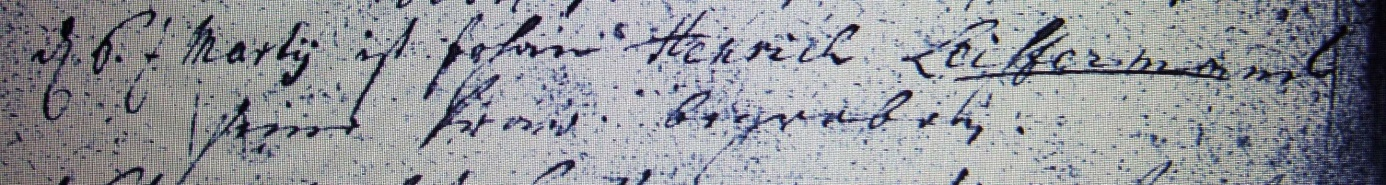 d. 6. t Martij ist Johan Henrich Leissermans
seine Frau begraben.